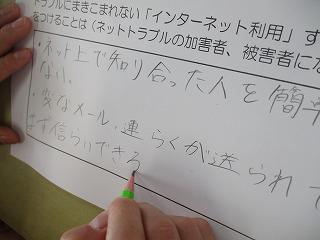 トラブルにまきこまれない「インターネット利用」す
をつけることは(ネットトラブルの加害者、被害者にな
・ネット上で知り合った人を簡単
ない。
・変なメール・連らくが送られて
まず信らいできる